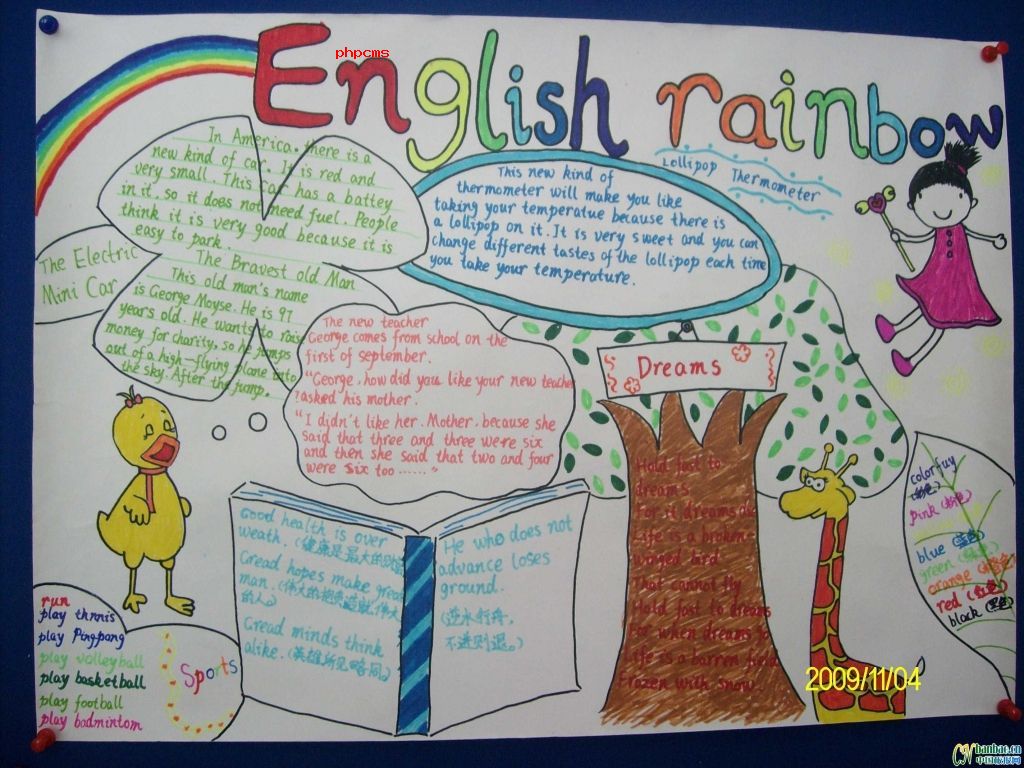 English rainbow
phpcms
In America. there is a
new kind of car. It is red and
very small. This car has a battey
in it, so it does not need fuel. People
think it is very good because it is
easy to park.
The Electric
Mini Car
The Bravest old Man
This old man's name
is George Moyse. He is 97
years old. He wants to raise
money for charity, so he jumps
out of a high-flying plane into
the sky. After the jump.
Lollipop Thermometer
This new kind of
thermometer will make you like
taking your temperatue because there is
a lollipop on it. It is very sweet and you can
change different tastes of the lollipop each time
you take your temperature.
The new teacher
George comes from school on the
first of september.
"George, how did you like your new teacher
?asked his mother.
"I didn't like her. Mother, because she
said that three and three were six
and then she said that two and four
were six too ......"
Dreams
Hold fast to
dreams
For it dreams die
Life is a broken-
winged bird
That cannot fly
Hold fast to dreams
For when dreams go
Life is a barren field
Frozen with snow.
Good health is over
weath. (健康是最大的财富
Gread hopes make great
man. (伟大的抱负造就伟大
的人。)
Gread minds think
alike. (英雄所见略同)
He who does not
advance loses
ground.
(逆水行舟,
不进则退。)
run
play thnnis
play Pingpong
play volleyball
play basketball
play football
play badmintom
Sports
colorfuy
pink (粉色)
blue (蓝色)
green (绿色)
orange
red (红色)
black (黑色)
2009/11/04
banbao.cn